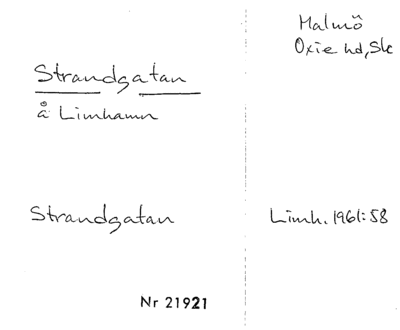 Malmö
Oxie hd, Sk
Strandgatan
å Limhamn
Strandgatan
Limh. 1961:58
Nr 21921